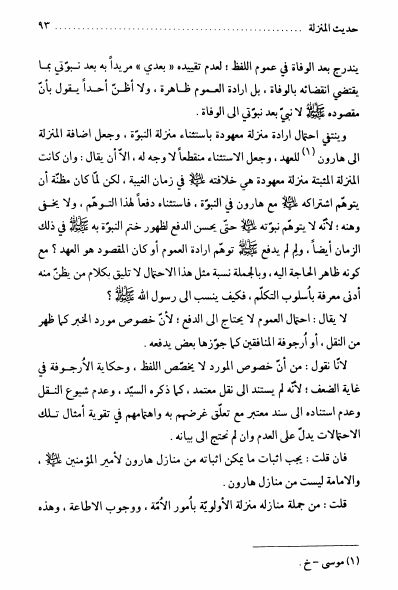 حديث المنزلة ................................................ ٩٣
يندرج بعد الوفاة في عموم اللفظ ؛ لعدم تقييده « بعدي » مريداً به بعد نبوّتي بما
يقتضي انقضائه بالوفاة ، بل ارادة العموم ظاهرة ، ولا أظنّ أحداً يقول بأنّ
مقصوده ﷺ لا نبيّ بعد نبوّتي الى الوفاة .
وينتفي احتمال ارادة منزلة معهودة باستثناء منزلة النبوّة ، وجعل اضافة المنزلة
الى هارون (١) للعهد ، وجعل الاستثناء منقطعاً لا وجه له ، الاّ أن يقال : وان كانت
المنزلة المثبتة منزلة معهودة هي خلافته ﷷ في زمان الغيبة ، لكن لمّا كان مظنّة أن
يتوهّم اشتراكه ﷷ مع هارون في النبوّة ، فاستثناء دفعاً لهذا التوهّم ، ولا يخفى
وهنه ؛ لأنّه لا يتوهّم نبوّته ﷷ حتّى يحسن الدفع لظهور ختم النبوّة به ﷺ في ذلك
الزمان أيضاً ، ولم لم يدفع ﷺ توهّم ارادة العموم أو كان المقصود هو العهد ؟ مع
كونه ظاهر الحاجة اليه ، وبالجملة نسبة مثل هذا الاحتمال لا تليق بكلام من يظنّ منه
أدنى معرفة بأسلوب التكلّم ، فكيف ينسب الى رسول الله ﷺ ؟
لا يقال : احتمال العموم لا يحتاج الى الدفع ؛ لأنّ خصوص مورد الخبر كما ظهر
من النقل ، أو أُرجوفة المنافقين كما جوّزها بعض يدفعه .
لأنّا نقول : من أنّ خصوص المورد لا يخصّص اللفظ ، وحكاية الأُرجوفة في
غاية الضعف ؛ لأنّه لم يستند الى نقل معتمد ، كما ذكره السيّد ، وعدم شيوع النقل
وعدم استناده الى سند معتبر مع تعلّق غرضهم به واهتمامهم في تقوية أمثال تلك
الاحتمالات يدلّ على العدم وان لم نحتج الى بيانه .
فان قلت : يجب اثبات ما يمكن اثباته من منازل هارون لأمير المؤمنين ﷷ ،
والامامة ليست من منازل هارون .
قلت : من جملة منازله منزلة الأولويّة بأُمور الأُمّة ، ووجوب الاطاعة ، وهذه
(١) موسى - خ .